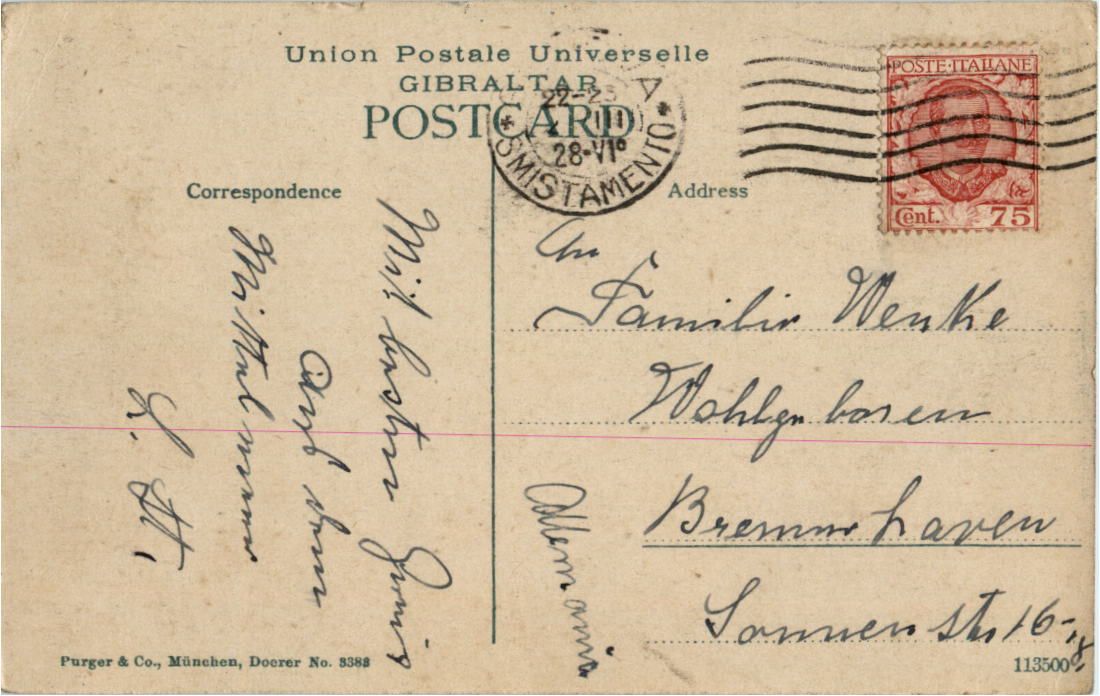 Union Postale Universelle
GIBRALTAR
POSTCARD
22-23
III
28-VIº
* SMISTAMENTO *
POSTE·ITALIANE
Cent. 75
Correspondence
Mit besten Gruß
aus dem
Mittelmeer
L. H.
Address
An
Familie Wenke
Wohlgeboren
Bremerhaven
Sonnenstr 16-18
Allemania
Purger & Co., München, Doerer No. 3383
113500